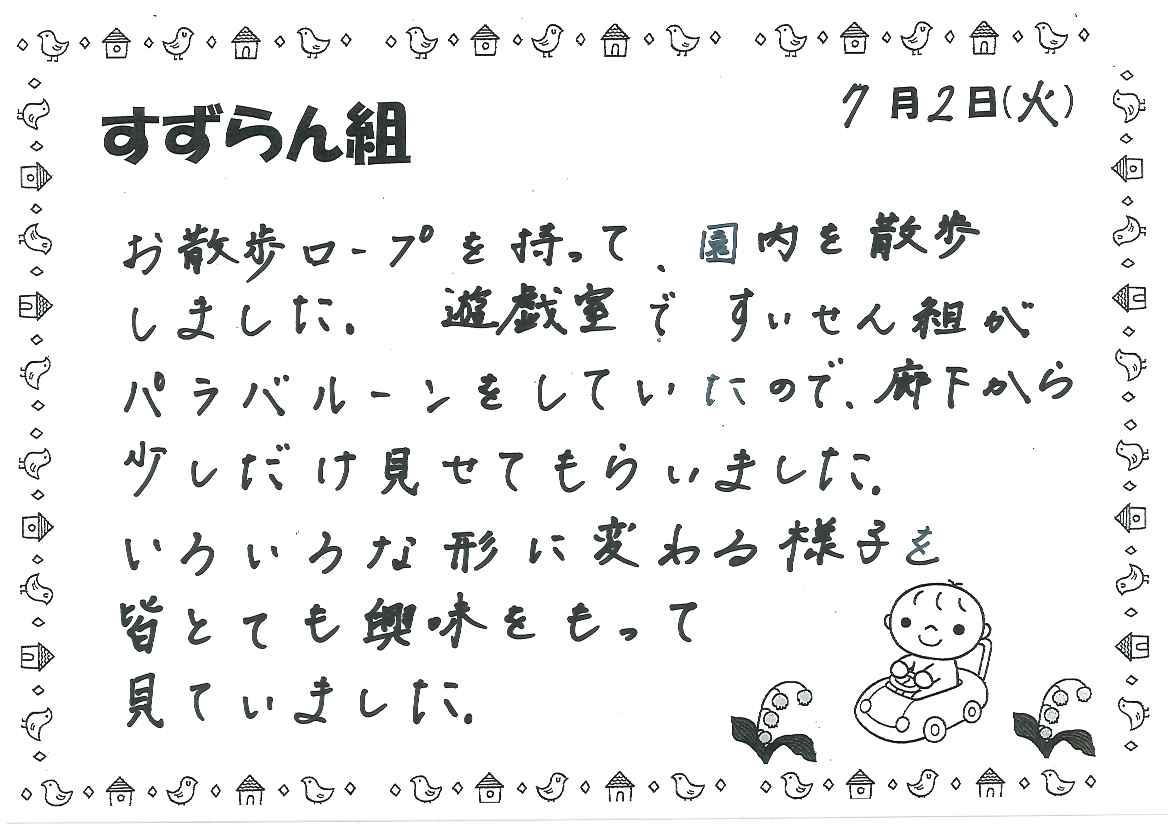 すずらん組
7月2日(火)
お散歩ロープを持って、園内を散歩
しました。 遊戯室で すいせん組が
パラバルーンをしていたので、廊下から
少しだけ見せてもらいました。
いろいろな形に変わる様子を
皆とても興味をもって
見ていました。